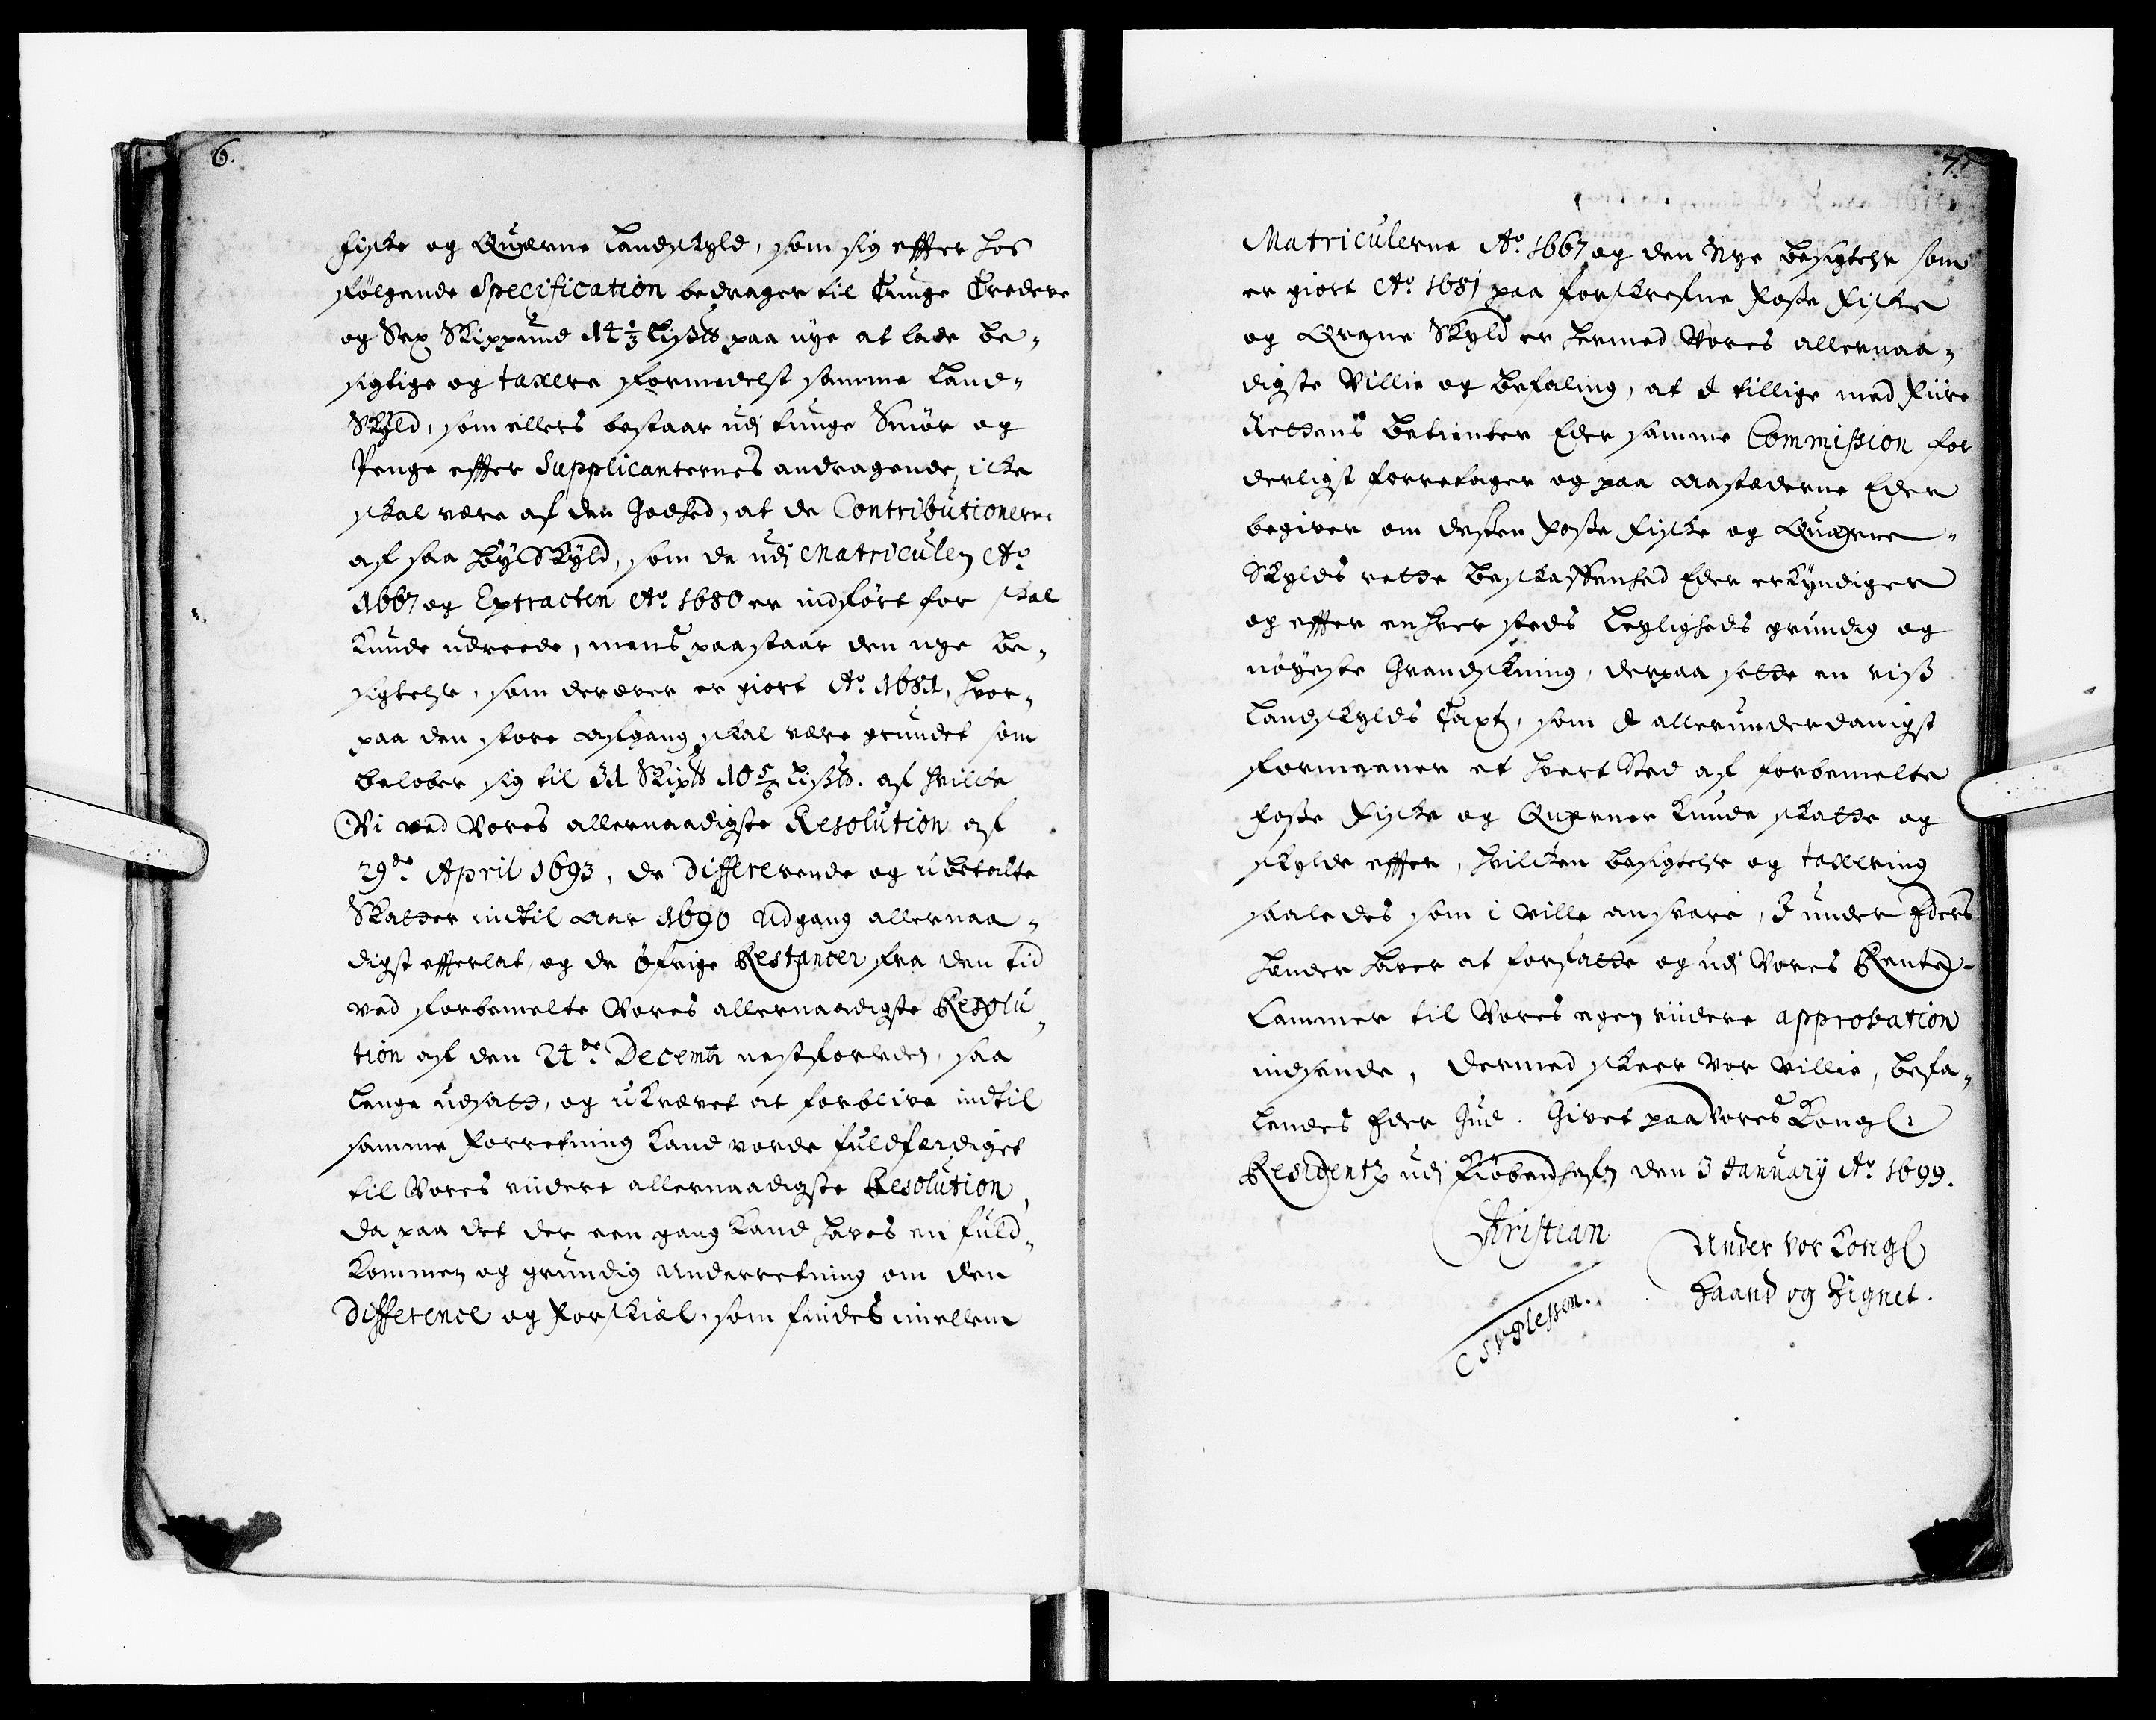 6.
Fiske og Quærne Landskyld, som sig effter hos
følgende Specification bedrager til Tiuge Tredeve
og Sex Skippund 14 2/3 Lispd paa nye at lade be-
sigtige og taxere formedelst samme Land-
Skyld, som ellers bestaar udj tunge Smör og
Penge effter Supplicanternes andragende, icke
skal være af den Godhed, at de Contributionerne
af saa höy Skyld, som de udj Matriculen Ao
1667 og Extracten Ao. 1680 er indført for skal
kunde udreede, mens paastaar den nye be-
sigtelse, som derover er giort Ao. 1681, hvor-
paa den store afgang skal være grundet som
beløber sig til 31 Skipd 10 5/6 Lispd. af hvilke
Vi ved Vores allernaadigste Resolution af
29de April 1693, de Differerende og ubetalte
Skatter indtil Aar 1690 Udgang allernaa-
digst efferlat, og de öfrige Restancer fra den tid
ved forbemelte Vores allernaadigste Resolu-
tion af den 24de Decembr nestforleden, saa
lenge udsatt, og ukrævet at forblive indtil
samme Forretning kand vorde fuldfærdiget
til Vores viidere allernaadigste Resolution,
Da paa det der een gang kand haves en fuld-
kommen og grundig Underretning om den
Difference og Forskiæl, som findes imellem
7.
Matriculerne Ao. 1667 og den Nye besigtelse som
er giort Ao. 1681 paa forskrefne Fosse Fiske
og Qverne Skyld er hermed Vores allernaa-
digste Villie og befaling, at I tillige med Fiire
Rettens Betienter Eder samme Commission for
derligst forretager og paa aastæderne Eder
begiver om dessen Fosse Fiske og Quærne-
Skylds rette beskaffenhed Eder erkyndiger
og effter enhver steds Leyligheds grundig og
nöyeste Grandskning, derpaa sette en viss
Landskylds Taxt, som I allerunderdanigst
formeener et hvert Sted af forbemelte
Fosse Fiske og Quærner kunde skatte og
skylde effter, hvilcken besigtelse og taxering
saaledes som i ville ansvare, I under Eders
hender haver at forfatte og udj Vores Rente-
Cammer til Vores egen viidere approbation
indsende, Dermed skeer Vor Villie, befa-
lendes Eder Gud. Givet paa Vores Kongl:
Residentz udj Kiøbenhafn den 3 January Ao. 1699.
Christian
Under Vor Kongl
Haand og Zignet.